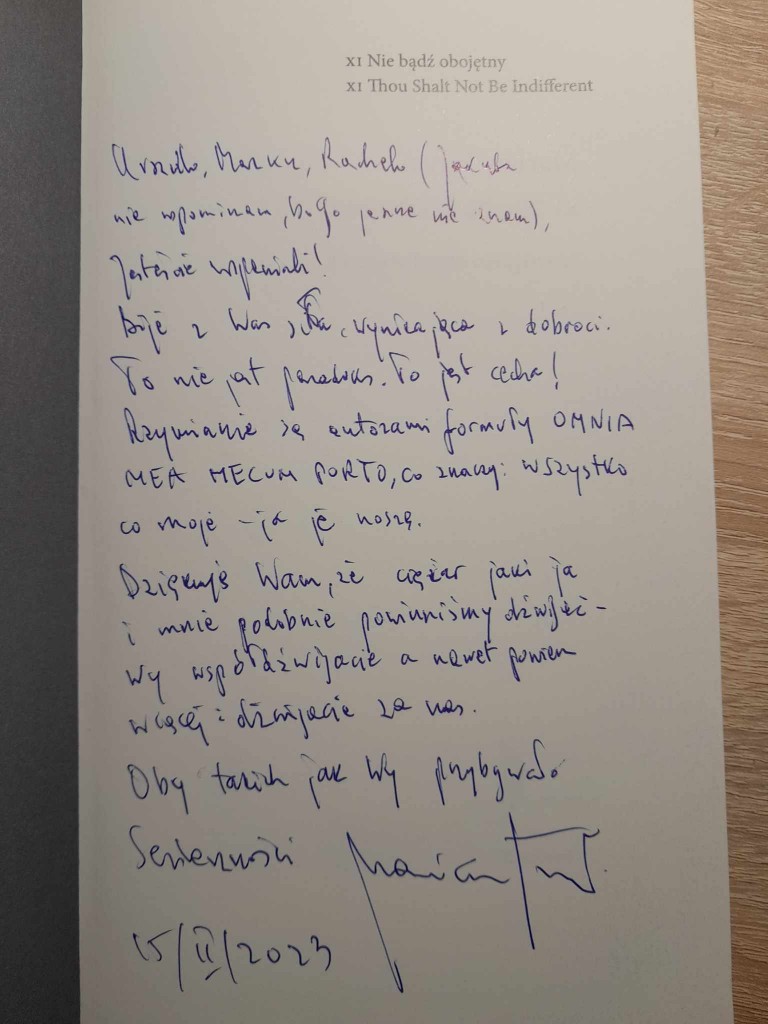 XI Nie bądź obojętny
XI Thou Shalt Not Be Indifferent
Urszulo, Marku, Rachelo (Jakuba
nie wspominam, bo go jeszcze nie znam),
Jesteście wspaniali!
Bije z Was siła, wynikająca z dobroci.
To nie jest paradoks. To jest cecha!
Rzymianie są autorami formuły OMNIA
MEA MECUM PORTO, co znaczy: wszystko
co moje – ja je noszę.
Dziękuję Wam, że ciężar jaki ja
i mnie podobnie powinniśmy dźwigać –
Wy współdźwigacie a nawet powiem
więcej: dźwigacie za nas.
Oby takich jak Wy przybywało
Serdeczności Marian
15/II/2023